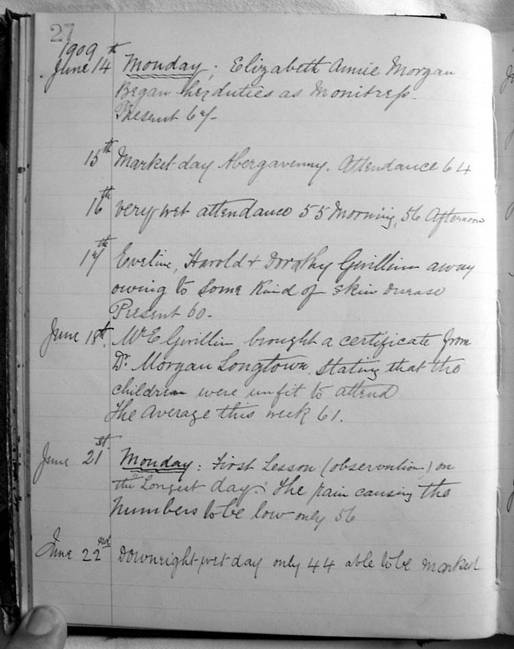 27
1909
June 14th Monday; Elizabeth Annie Morgan
Began her duties as Monitress.
Present 67.
15th Market day Abergavenny. Attendance 64
16th very wet attendance 55 Morning, 56 Afternoon
17th Eveline, Harold & Dorothy Gwillim away
owing to some kind of skin disease
Present 60.
June 18th. Mr E Gwillim brought a certificate from
Dr. Morgan Longtown, stating that the
children were unfit to attend
The Average this week 61.
June 21st Monday: First Lesson (observation) on
the Longest day. The rain causing the
Numbers to be low only 56
June 22nd Downright wet day only 44 able to be marked